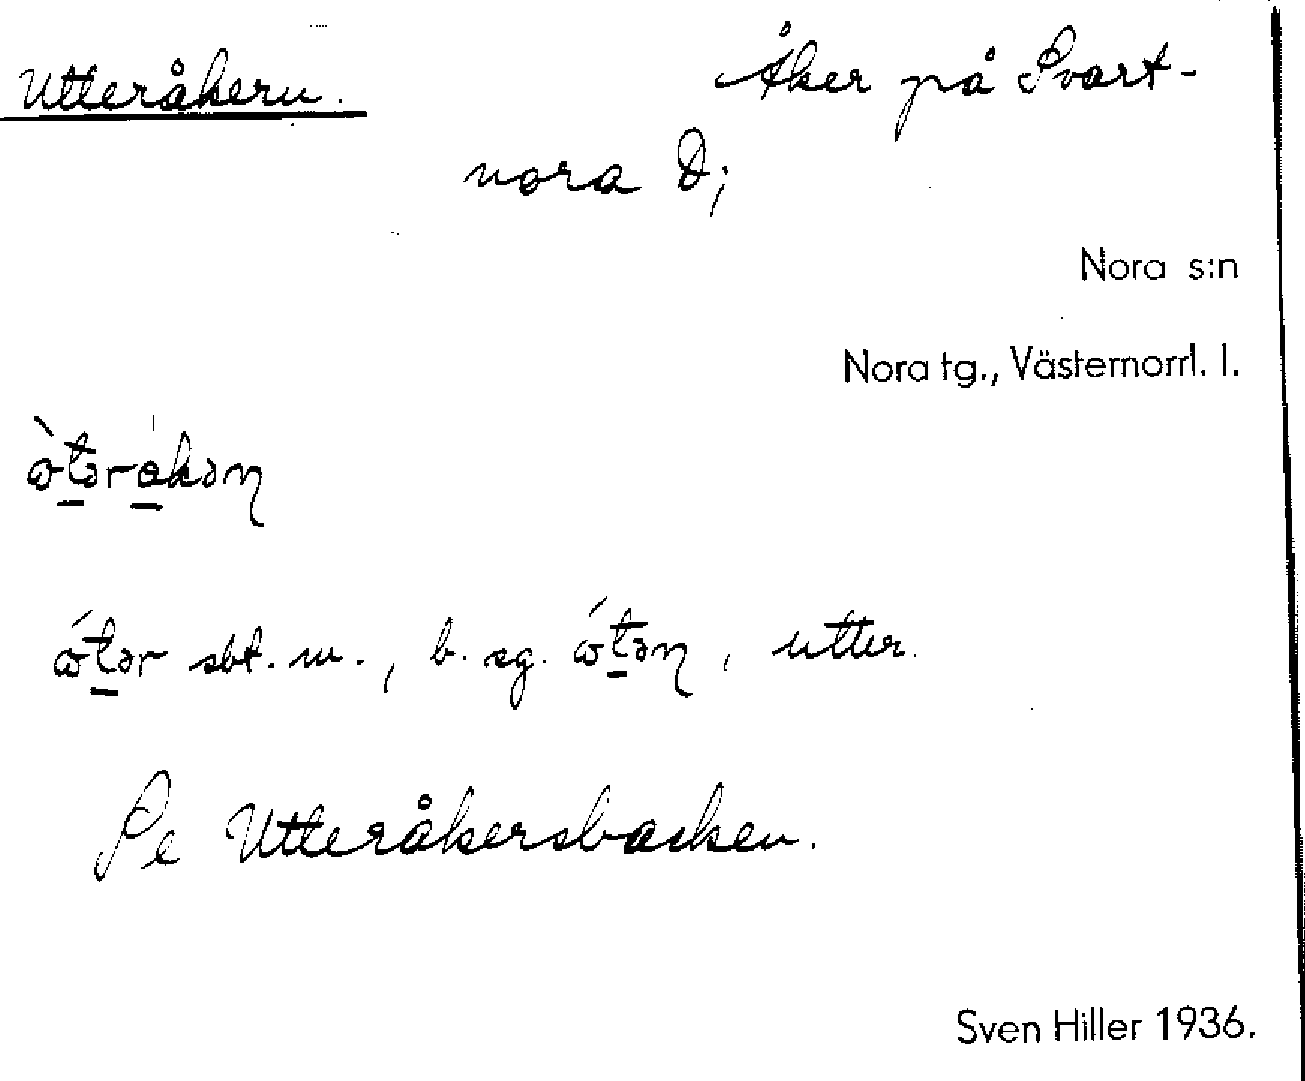 Utteråkern. Åker på Svart-
nora D;
Nora s:n
Nora tg., Västernorrl. l.
sbt. m., b. sg. , utter.
Se Utteråkersbacken.
Sven Hiller 1936.